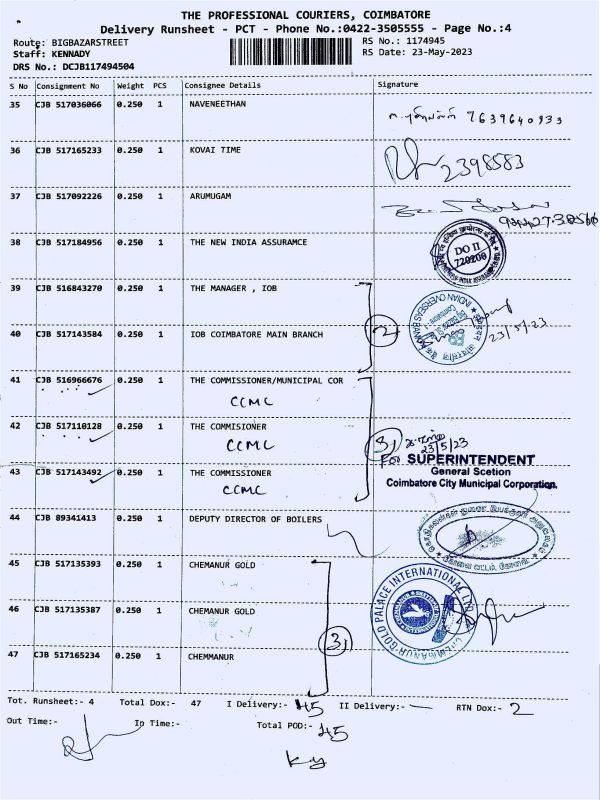 THE PROFESSIONAL COURIERS, COIMBATORE
Delivery Runsheet - PCT - Phone No.:0422-3505555 - Page No.:4
Route: BIGBAZARSTREET
RS No.: 1174945
Staff: KENNADY
RS Date: 23-May-2023
DRS No.: DCJB117494504
S No Consignment No Weight PCS Consignee Details Signature
35 CJB 517036066 0.250 1 NAVENEETHAN 7639640933
36 CJB 517165233 0.250 1 KOVAI TIME 2398583
37 CJB 517092226 0.250 1 ARUMUGAM
38 CJB 517184956 0.250 1 THE NEW INDIA ASSURAMCE
DO II
720200
39 CJB 516843270 0.250 1 THE MANAGER , IOB
INDIAN OVERSEAS BANK
40 CJB 517143584 0.250 1 IOB COIMBATORE MAIN BRANCH
2
23/5/23
41 CJB 516966676 0.250 1 THE COMMISSIONER/MUNICIPAL COR
CCMC
42 CJB 517110128 0.250 1 THE COMMISIONER
CCMC
3
23/5/23
For SUPERINTENDENT
General Scetion
43 CJB 517143492 0.250 1 THE COMMISSIONER
Coimbatore City Municipal Corporation.
CCMC
44 CJB 89341413 0.250 1 DEPUTY DIRECTOR OF BOILERS
45 CJB 517135393 0.250 1 CHEMANUR GOLD
46 CJB 517135387 0.250 1 CHEMANUR GOLD
CHEMMANUR GOLD PALACE INTERNATIONAL LTD
3
47 CJB 517165234 0.250 1 CHEMMANUR
Tot. Runsheet:- 4 Total Dox:- 47 I Delivery:- 45 II Delivery:- — RTN Dox:- 2
Out Time:- In Time:- Total POD:- 45